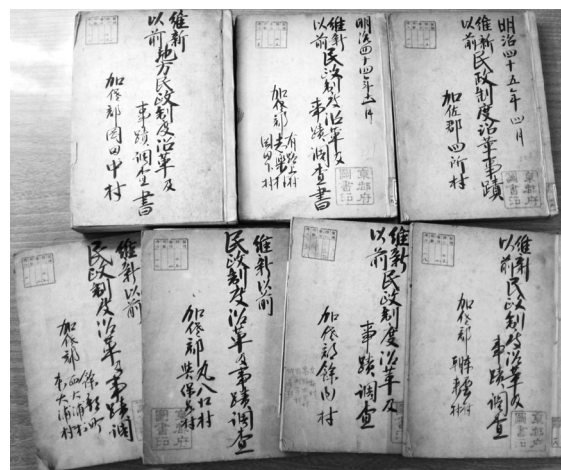 維新
以前
地方民政制度沿革及
事蹟調査書
加佐郡岡田中村
明治四十四年十一月
維新
以前
民政制度沿革及
事蹟調査書
加佐郡
有路上村
岡田下村
明治四十五年四月
維新
以前
民政制度沿革事蹟
加佐郡四所村
維新以前
民政制度沿革及事蹟調
加佐郡
余部町
四大浦村
東大浦村
維新以前
民政制度沿革及事蹟調査
加佐郡
丸八江村
與保呂村
維新
以前
民政制度沿革及
事蹟調査
加佐郡餘内村
維新
以前
民政制度沿革及
事蹟調査
加佐郡